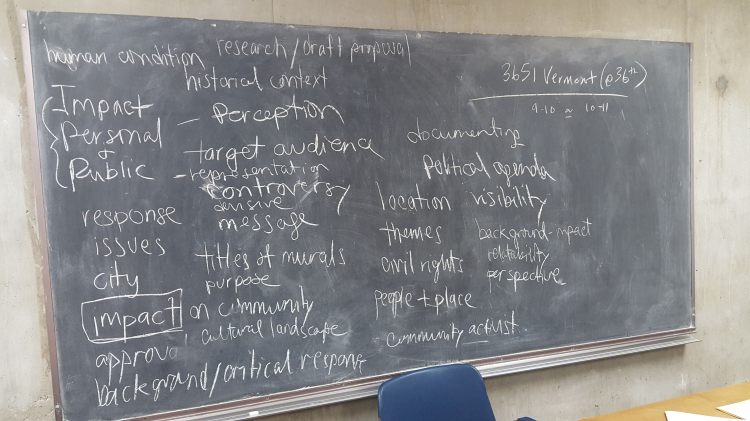 human condition research/draft proposal
historical context
3651 Vermont (@36th)
9-10 10-11
Impact
Personal
+
Public
- Perception
target audience
- representation
controversy
message
documenting
Political agenda
location visibility
response
issues
city
impact on community
titles of murals
purpose
cultural landscape
themes
civil rights
people + place
community activist
background - impact
relatability
perspective
background/critical response